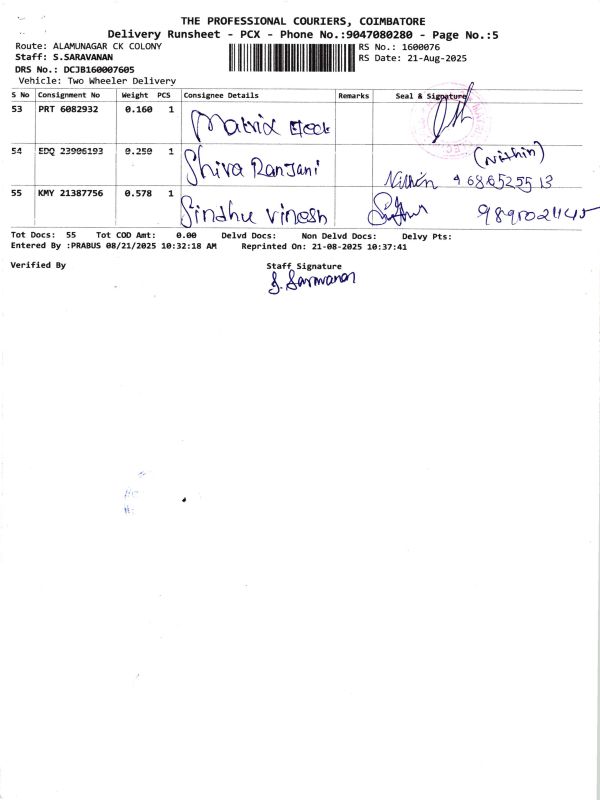 THE PROFESSIONAL COURIERS, COIMBATORE
Delivery Runsheet - PCX - Phone No.:9047080280 - Page No.:5
Route: ALAMUNAGAR CK COLONY RS No.: 1600076
Staff: S.SARAVANAN RS Date: 21-Aug-2025
DRS No.: DCJB160007605
Vehicle: Two Wheeler Delivery
S No Consignment No Weight PCS Consignee Details Remarks Seal & Signature
53 PRT 6082932 0.160 1 Matrix
(Nithin)
54 EDQ 23906193 0.250 1 Shiva Ranjani Nithin 9686525513
55 KMY 21387756 0.578 1 Sindhu Vinesh
Tot Docs: 55 Tot COD Amt: 0.00 Delvd Docs: Non Delvd Docs: Delvy Pts:
Entered By :PRABUS 08/21/2025 10:32:18 AM Reprinted On: 21-08-2025 10:37:41
Verified By Staff Signature
S. Saravanan